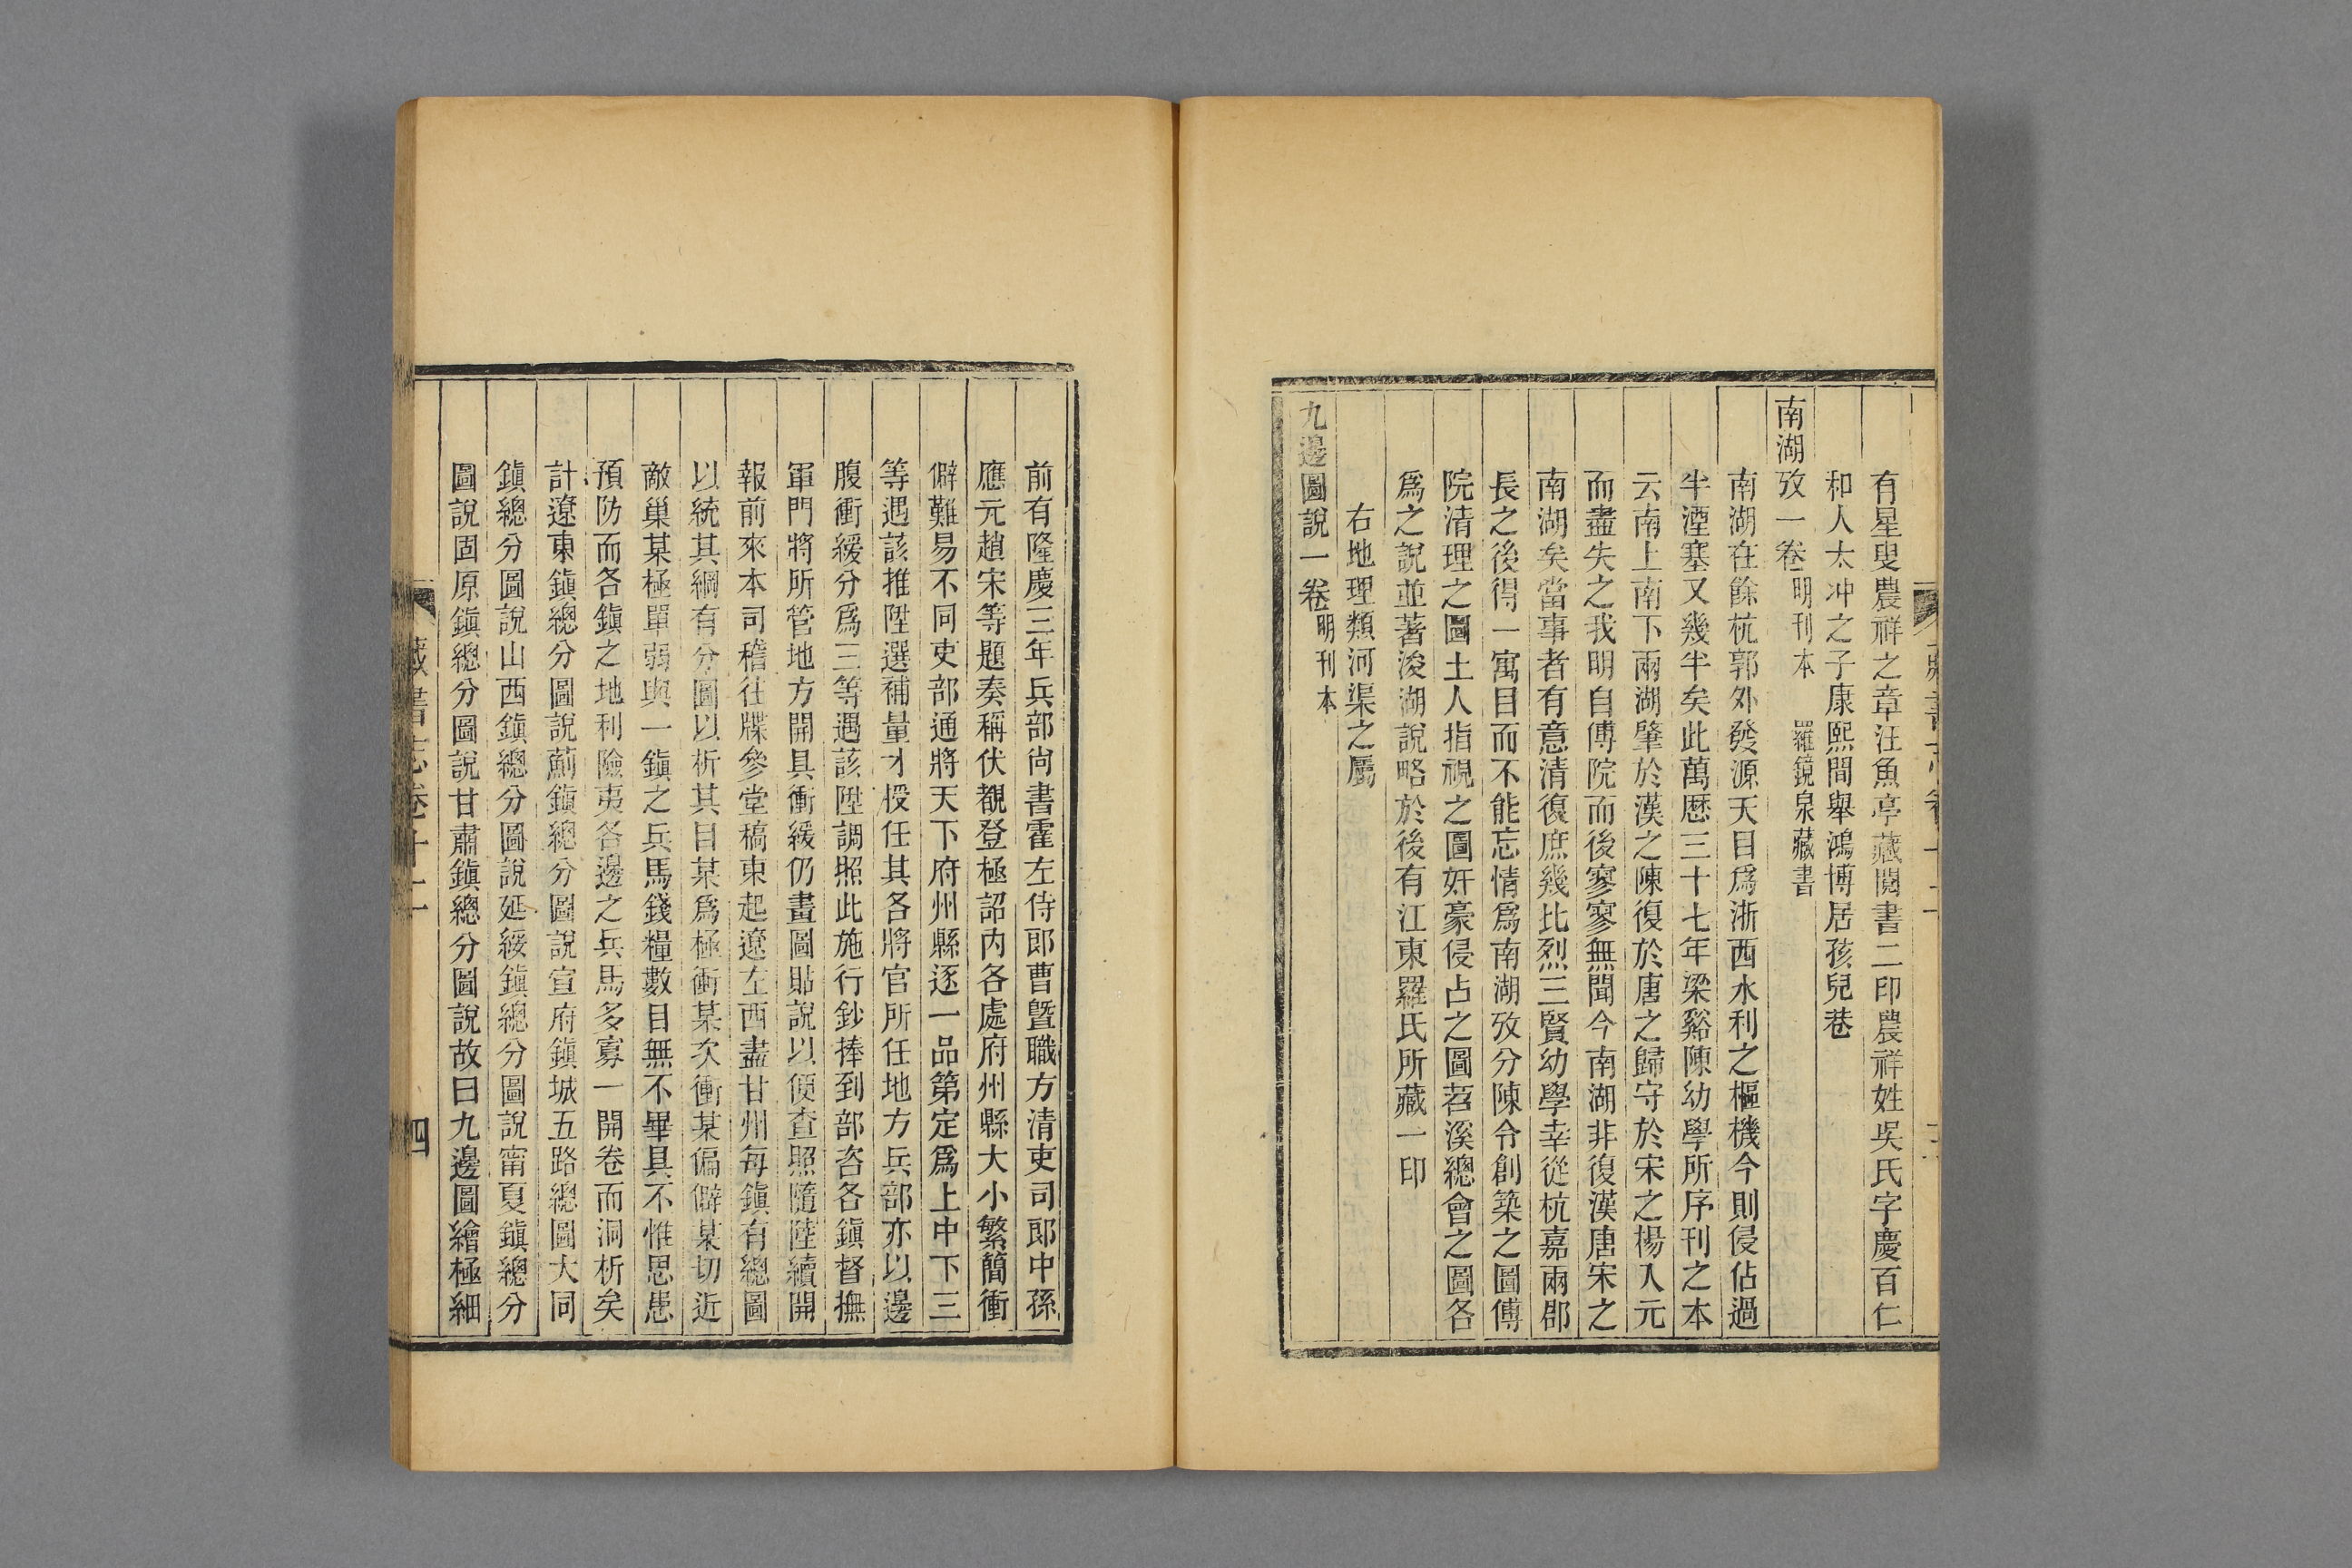 有星叟農祥之章汪魚亭藏閱書二印農祥姓吳氏字慶百仁
和人太冲之子康熙間舉鴻博居孩兒巷
南湖攷一卷 明刊本 羅鏡泉藏書
南湖在餘杭郭外發源天目爲浙西水利之樞機今則侵佔過
半湮塞又幾半矣此萬歷三十七年梁谿陳幼學所序刊之本
云南上南下兩湖肇於漢之陳復於唐之歸守於宋之楊入元
而盡失之我明自傅院而後寥寥無聞今南湖非復漢唐宋之
南湖矣當事者有意清復庶幾比烈三賢幼學幸從杭嘉兩郡
長之後得一寓目而不能忘情爲南湖攷分陳令創築之圖傅
院清理之圖土人指視之圖奸豪侵占之圖苕溪總會之圖各
爲之說並著浚湖說略於後有江東羅氏所藏一印
右地理類河渠之屬
九邊圖說一卷 明刊本
前有隆慶三年兵部尚書霍左侍郎曹曁職方清吏司郎中孫
應元趙宋等題奏稱伏覩登極詔內各處府州縣大小繁簡衝
僻難易不同吏部通將天下府州縣逐一品第定爲上中下三
等遇該推陞選補量才授任其各將官所任地方兵部亦以邊
腹衝緩分爲三等遇該陞調照此施行鈔捧到部咨各鎮督撫
軍門將所管地方開具衝緩仍畫圖貼說以便查照隨陸續開
報前來本司稽往牒參堂稿東起遼左西盡甘州每鎮有總圖
以統其綱有分圖以析其目某爲極衝某次衝某偏僻某切近
敵巢某極單弱與一鎮之兵馬錢糧數目無不畢具不惟思患
預防而各鎮之地利險夷各邊之兵馬多寡一開卷而洞析矣
計遼東鎮總分圖說薊鎮總分圖說宣府鎮城五路總圖大同
鎮總分圖說山西鎮總分圖說延綏鎮總分圖說甯夏鎮總分
圖說固原鎮總分圖說甘肅鎮總分圖說故曰九邊圖繪極細
藏書志卷十二
四